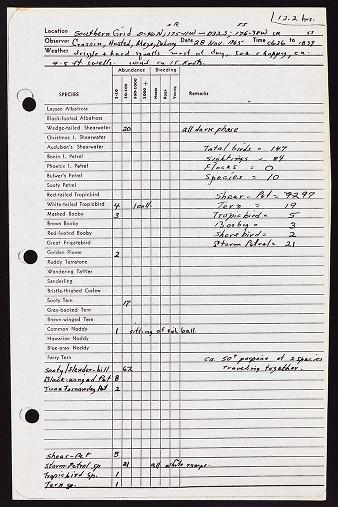 12.2 hrs.
Location Southern Grid
SR SS
Observer Crossin, Husted, Date 28 Nov. 1965 Time 0626 to 1839
Weather drizzle + hard squalls most of day, sea choppy, ca.
4-5 ft swells. wind ca 15 knots.
SPECIES Abundance Breeding Remarks
1-10 10-100 100-1000 1000 + Nests Eggs Young
Laysan Albatross
Black-footed Albatross
Wedge-tailed Shearwater 20 all dark phase
Christmas I. Shearwater
Audubon's Shearwater Total birds = 147
Bonin I. Petrel Sightings = 84
Phoenix I. Petrel Flocks = 0
Bulwer's Petrel Species = 10
Sooty Petrel
Red-tailed Tropicbird Shear-Pet = 97
White-tailed Tropicbird 4 1 coll. Tern = 19
Masked Booby 3 Tropicbird = 5
Brown Booby Booby = 3
Red-footed Booby Shorebird = 2
Great Frigatebird Storm Petrel = 21
Golden Plover 2
Ruddy Turnstone
Wandering Tattler
Sanderling
Bristle-thighed Curlew
Sooty Tern 17
Gray-backed Tern
Brown-winged Tern
Common Noddy 1 sitting on fish ball.
Hawaiian Noddy
Blue-gray Noddy
Fairy Tern ca. 50+ porpoise of 2 species
Sooty/Slender-bill 62 traveling together.
Black-winged Pet 8
Juan Fernandez Pet 2
Shear-Pet 5
Storm Petrel sp 21 all white rumps.
Tropicbird sp. 1
Tern sp. 1